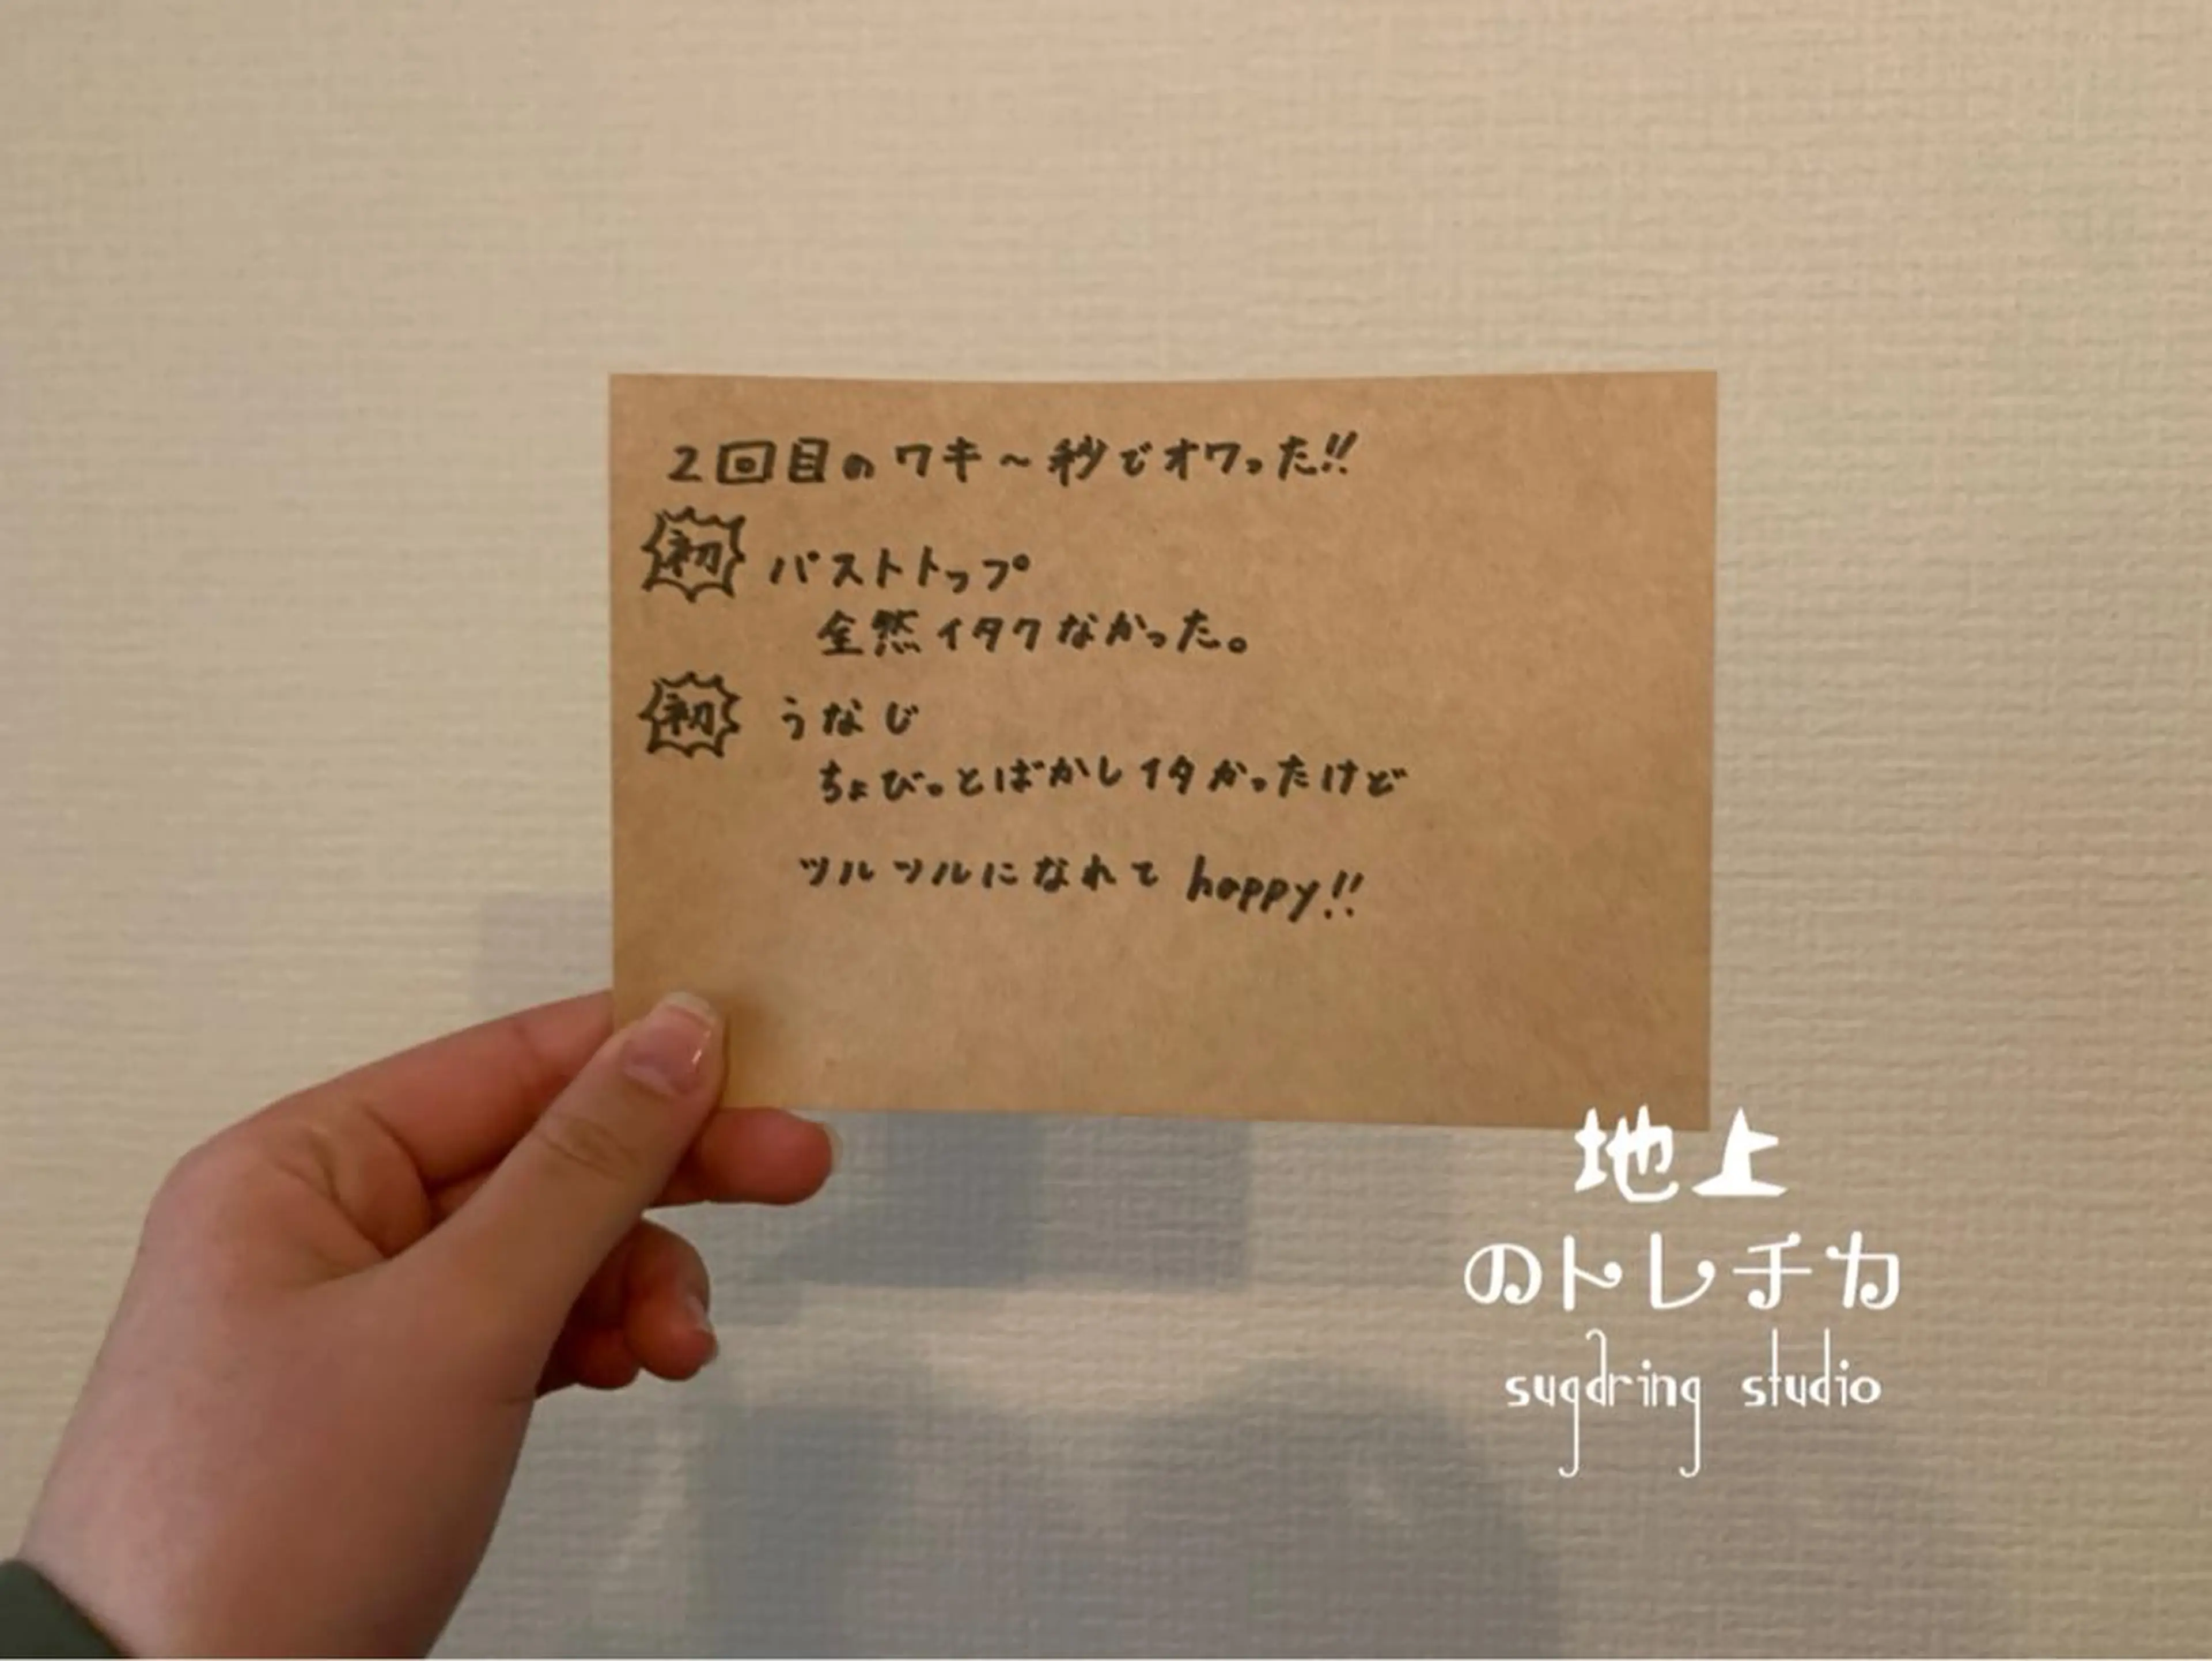 2回目のワキ～秒でオワった!!
初 バストトップ
全然イタクなかった。
初 うなじ
ちょびっとばかしイタかったけど
ツルツルになれて happy!!
地上
のトレチカ
sugaring studio